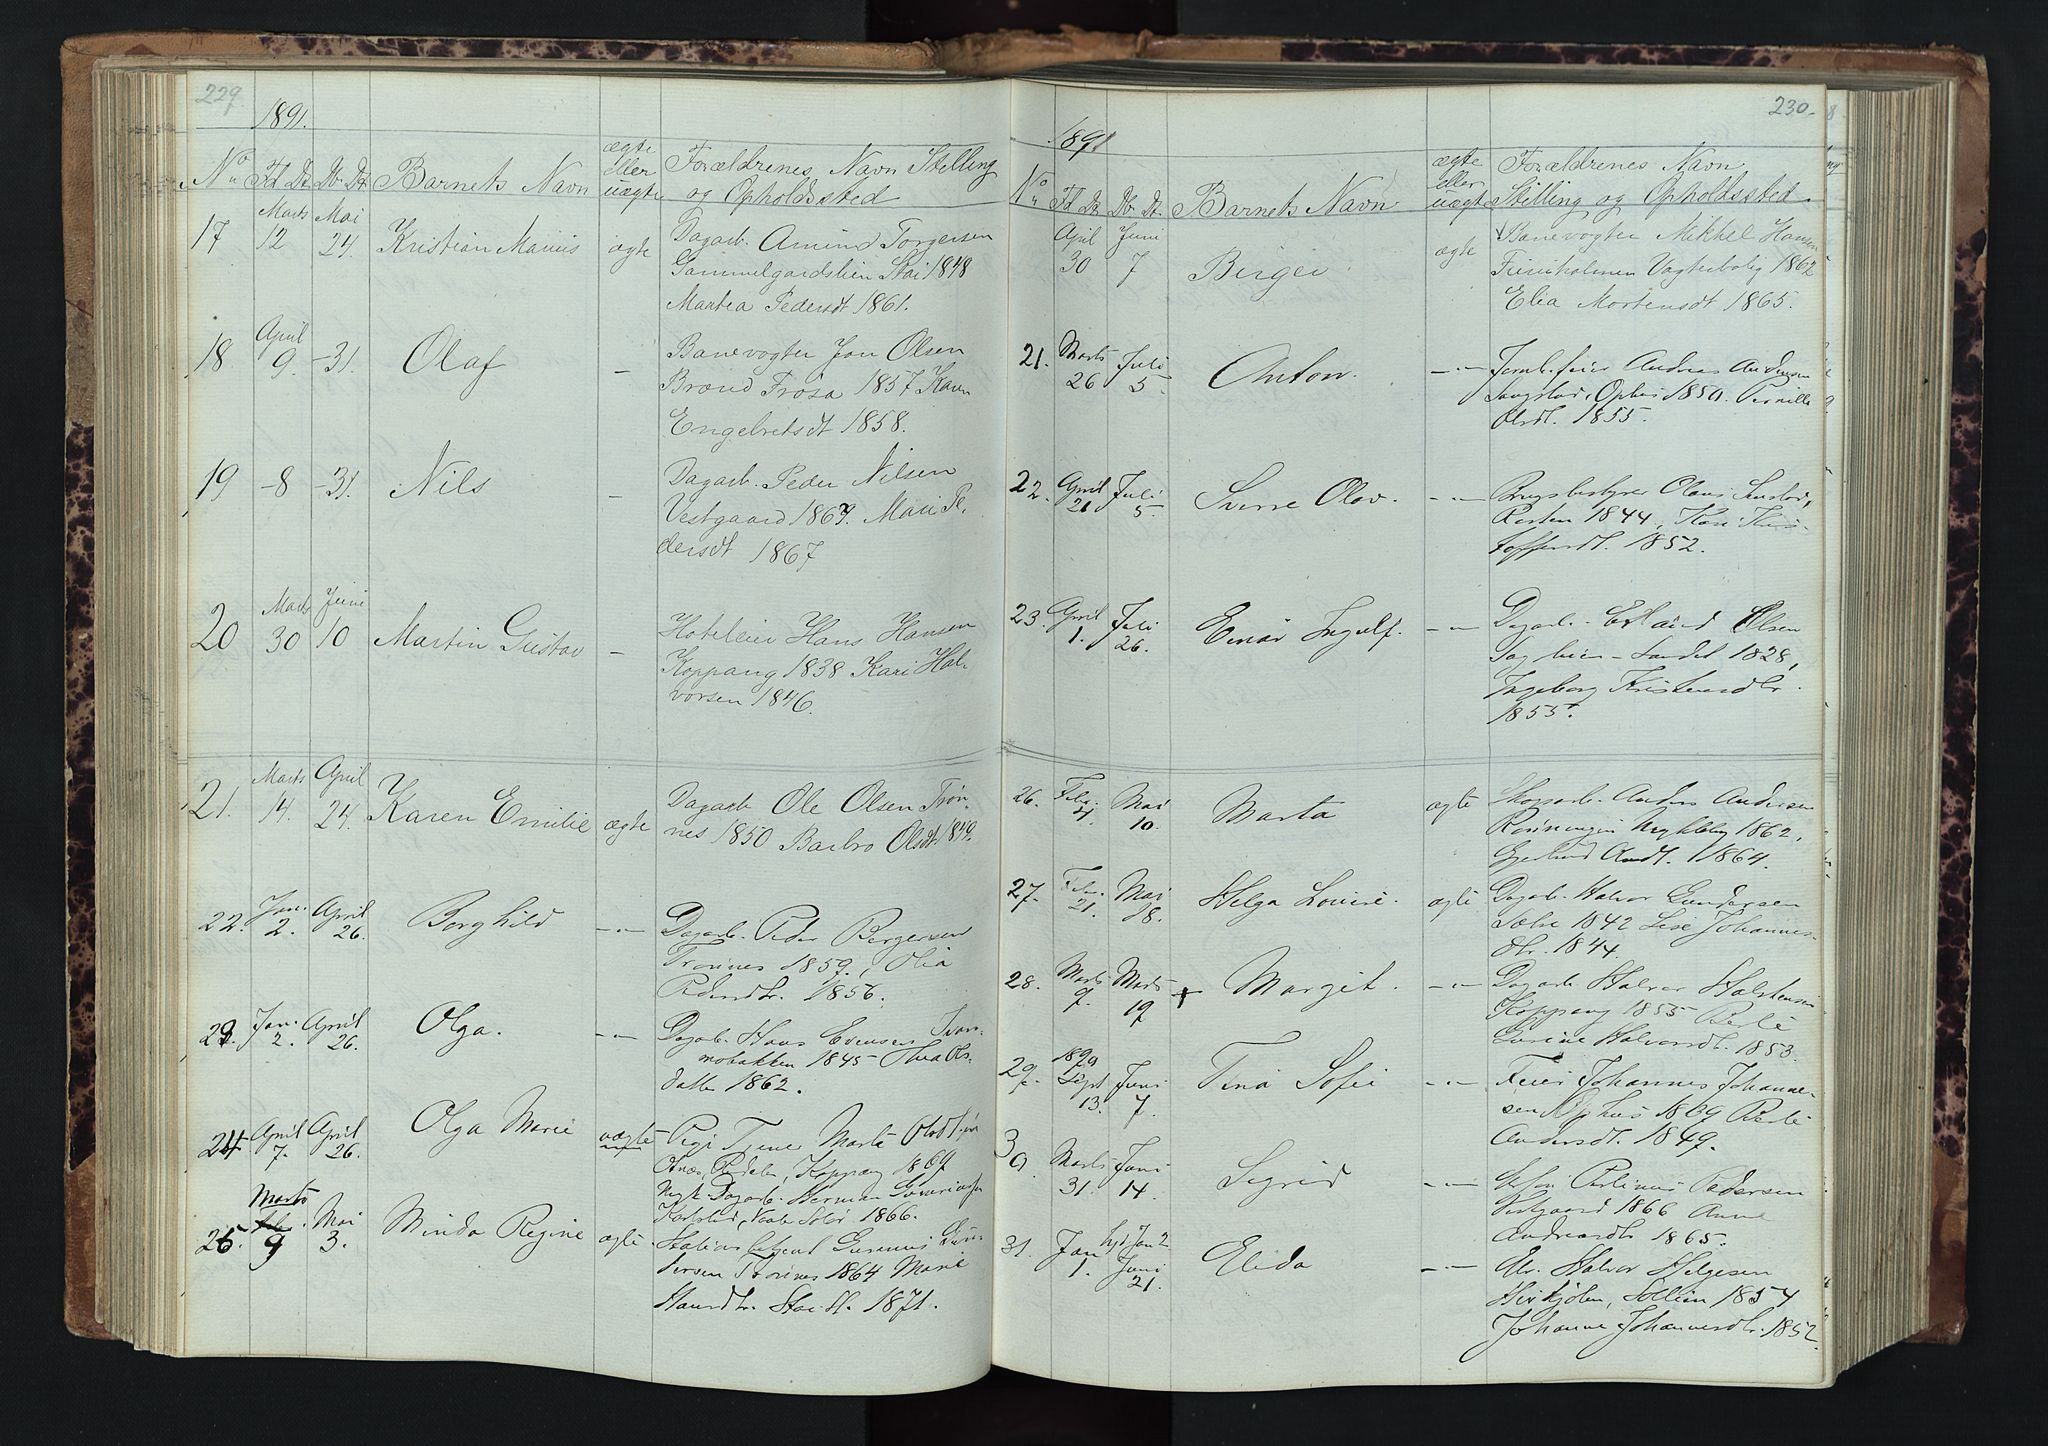 229.
1891.
No Fd Dt. Db Dt. Barnets Navn ægte eller uægte Forældrenes Navn Stilling
og Opholdssted
17 Marts 12 Mai 24. Kristian Marius ægte Dagarb. Amund Torgersen
Gammelgardslien Stai 1848
Martea Pedersdt 1861.
18 April 9. -31. Olaf - Banevogter Jon Olsen
Brænd Frøsa 1857 Karen
Engebretsdt 1858.
19 -8 -31. Nils - Dagarb. Peder Nilsen
Vestgaard 1869. Mari Pe,
dersdt 1867
20 Marts 30 Juni 10 Martin Gustav - Hoteleier Hans Hansen
Koppang 1838 Kari Hal-
vorsen 1846.
21. Marts 14. April 24. Karen Emilie ægte Dagarb Ole Olsen Trøn-
nes 1850 Barbro Olsdt. 1849.
22. Jan. 2. April 26. Borghild - " - Dagarb. Peder Bergersen
Trønnes 1859., Olia
Pedersdtr. 1856.
23. Jan. 2. April 26. Olga. - " - Dagarb. Hans Evensen
mobakken 1845 Thea Ols-
datter 1862.
24 April 7. April 26. Olga Marie uægte Pige Tjener Marte Olsdt fra
Koppang 1869
Dagarb. Herman
1866.
25. Marts 9 Mai 3. Minda Regine ægte.
Trønnes 1864 Marie
Hansdtr. Stai 1871.
230.
1891
No Fd Dt Db. Dt. Barnets Navn ægte eller uægt Forældrenes Navn
Stilling og Opholdssted.
April 30 Juni 7 Birger ægte Banevogter Mikkel Hansen
Vogterbolig 1862
Elia Mortensdt 1865.
21. Marts 26 Juli 5. Anton. - " - Andreas Andersen
Ophus 1850. Pernille
Olsdt. 1855.
22. April 21 Juli 5. Sverre Olav. - " - Brugsbestyrer Olaus
Rasten 1844, Kari Kris-
toffersdt. 1852.
23. April 1. Juli 26. Einar Ingulf. - " - Dagarb. Olsen
Sandet 1828,
Ingeborg Kristensdtr.
1855.
26. Febr. 4. Mai 10. Marta ægte Skogarb. Anders Andersen
1862,
1864.
27. Febr. 21. Mai 18. Helga Lovise. ægte Dagarb. Halvor Gundersen
1842 Lise Johannes-
dtr. 1844.
28. Marts 9. Marts 19 + Margit. - " - Dagarb Halvor Halstensen
Koppang 1855 Berte
Gurine Halvorsdt. 1853.
29. 1890 Sept 13. Juni 7. Tina Sofie - " - Feier Johannes Johanne-
sen Ophus 1869 Berte
Andersdt. 1849.
30 Marts 31. Juni 14. Sigrid - " - Petersen
Vestgaard 1866 Anne
Andreasdtr 1865.
31. Jan 1. hjd Jan 2 Juni 21. Elida - " - Halvor Helgesen
Sollien 1854
Johanne Johannesdtr. 1852.